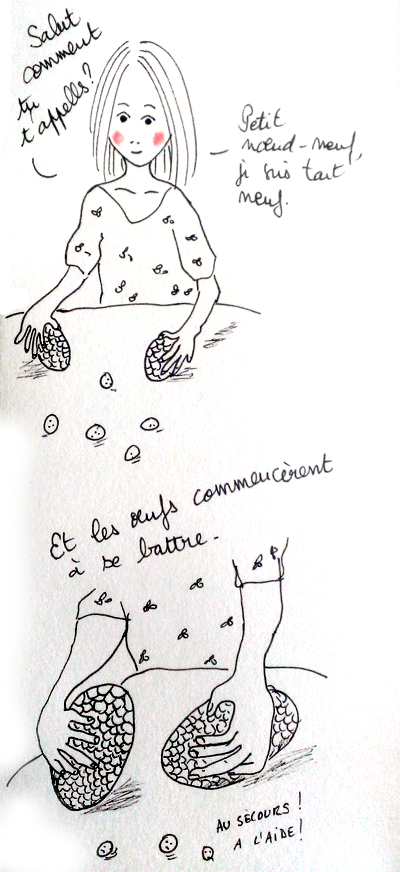 Salut
comment
tu
t'appells?
Petit
nœud-neuf,
je suis tout
neuf.
Et les œufs commencèrent
à se battre.
AU SECOURS !
A L'AIDE !